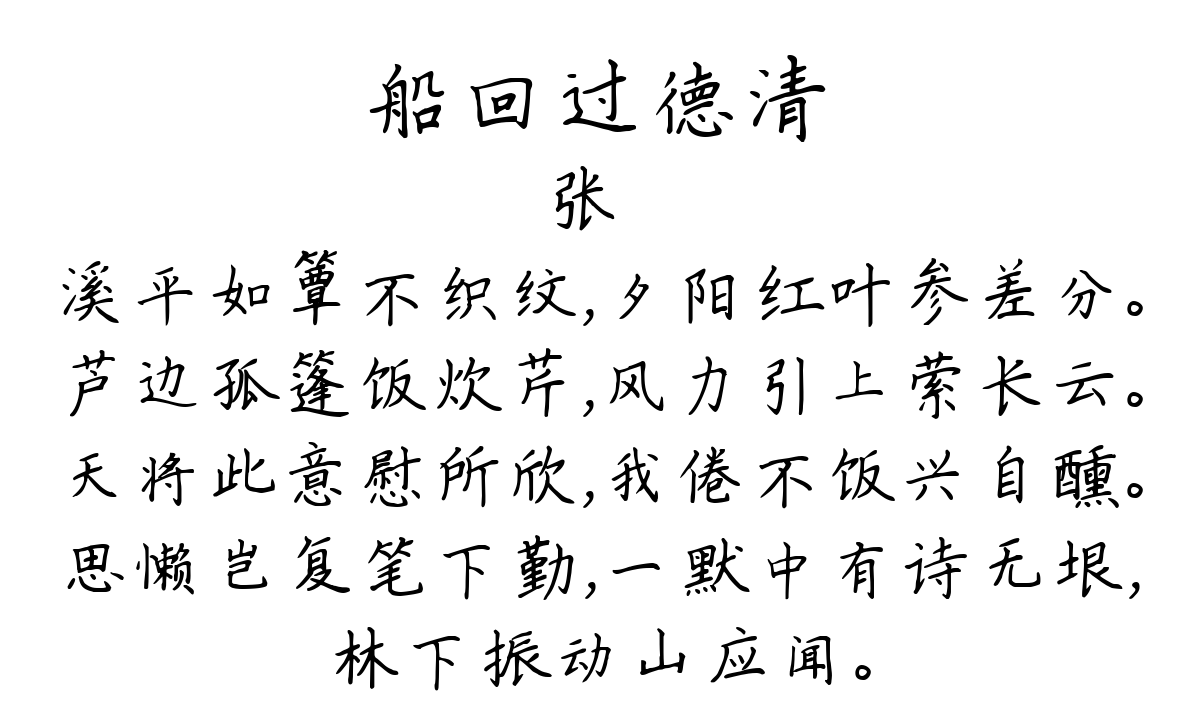 船回过德清
张
溪平如簟不织纹,夕阳红叶参差分。
芦边孤篷饭炊芹,风力引上萦长云。
天将此意慰所欣,我倦不饭兴自醺。
思懒岂复笔下勤,一默中有诗无垠,
林下振动山应闻。